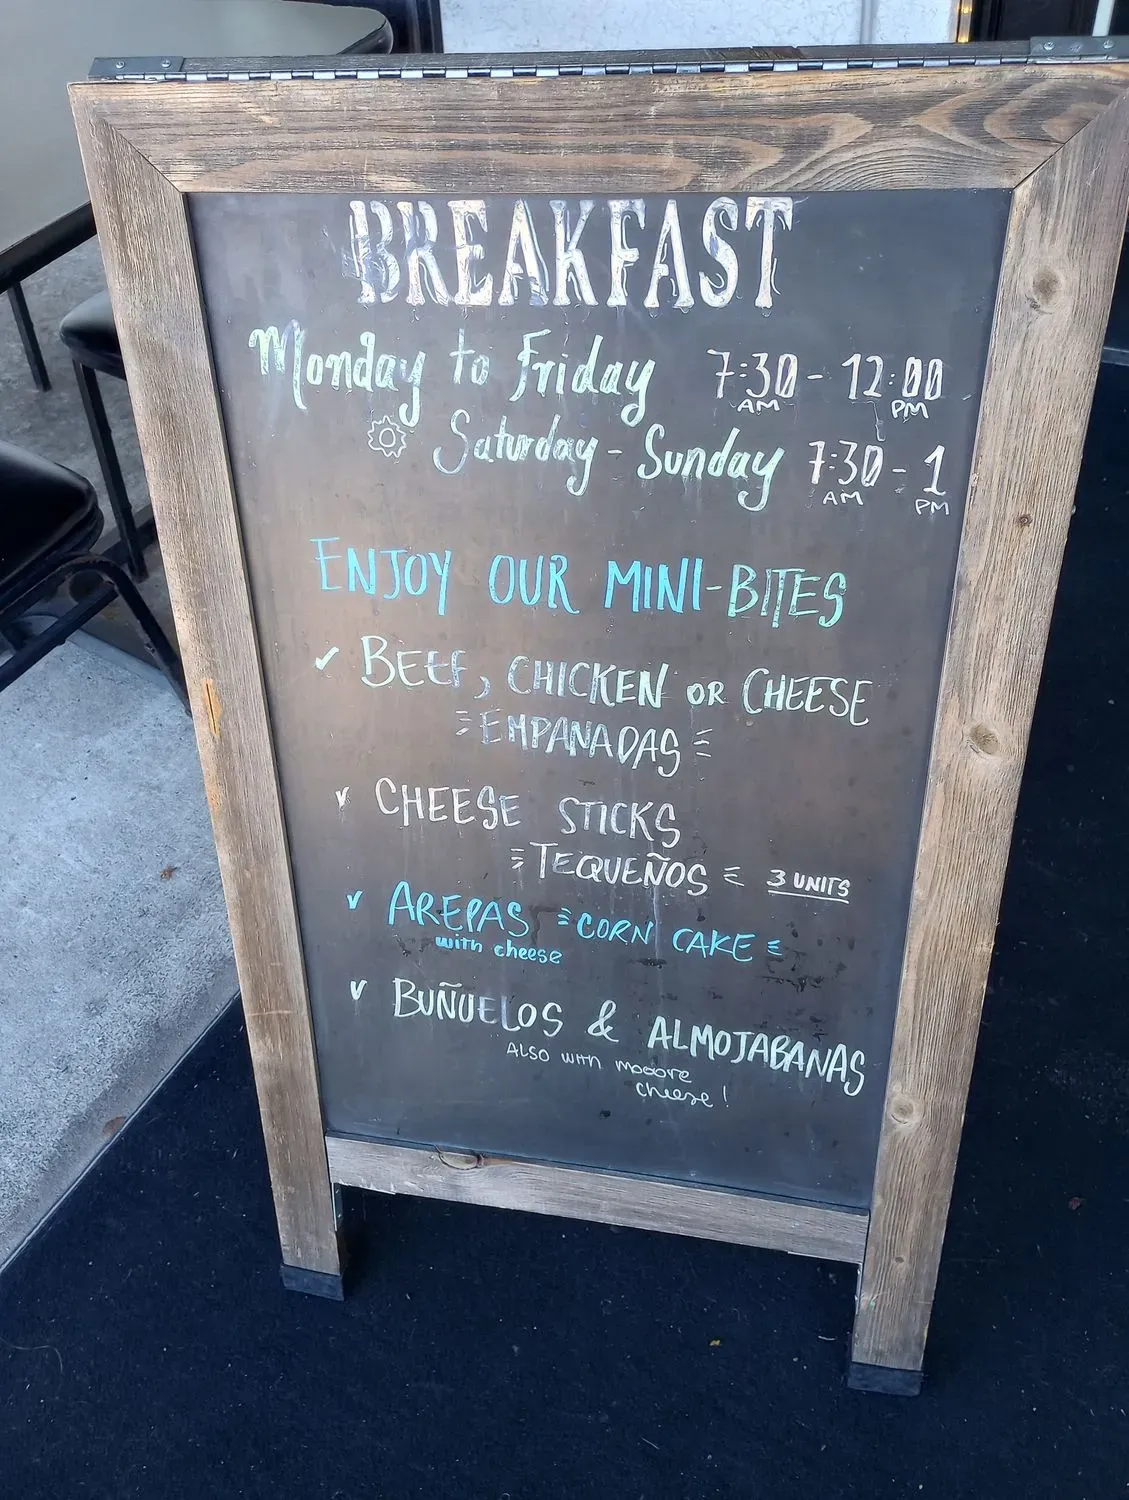 BREAKFAST
Monday to Friday 7:30 - 12:00
AM PM
Saturday - Sunday 7:30 - 1
AM PM
ENJOY OUR MINI-BITES
✓ BEEF, CHICKEN OR CHEESE
EMPANADAS
✓ CHEESE STICKS
TEQUEÑOS 3 UNITS
✓ AREPAS CORN CAKE
with cheese
✓ BUÑUELOS & ALMOJABANAS
ALSO WITH mooore
cheese!